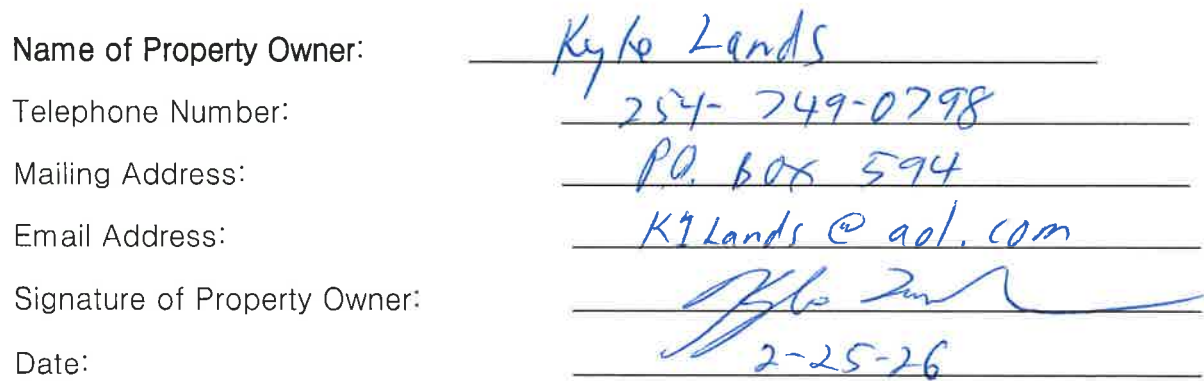 Name of Property Owner: Kyle Lands
Telephone Number: 254-749-0798
Mailing Address: P.O. Box 594
Email Address: K1Lands@aol.com
Signature of Property Owner: Kyle
Date: 2-25-26